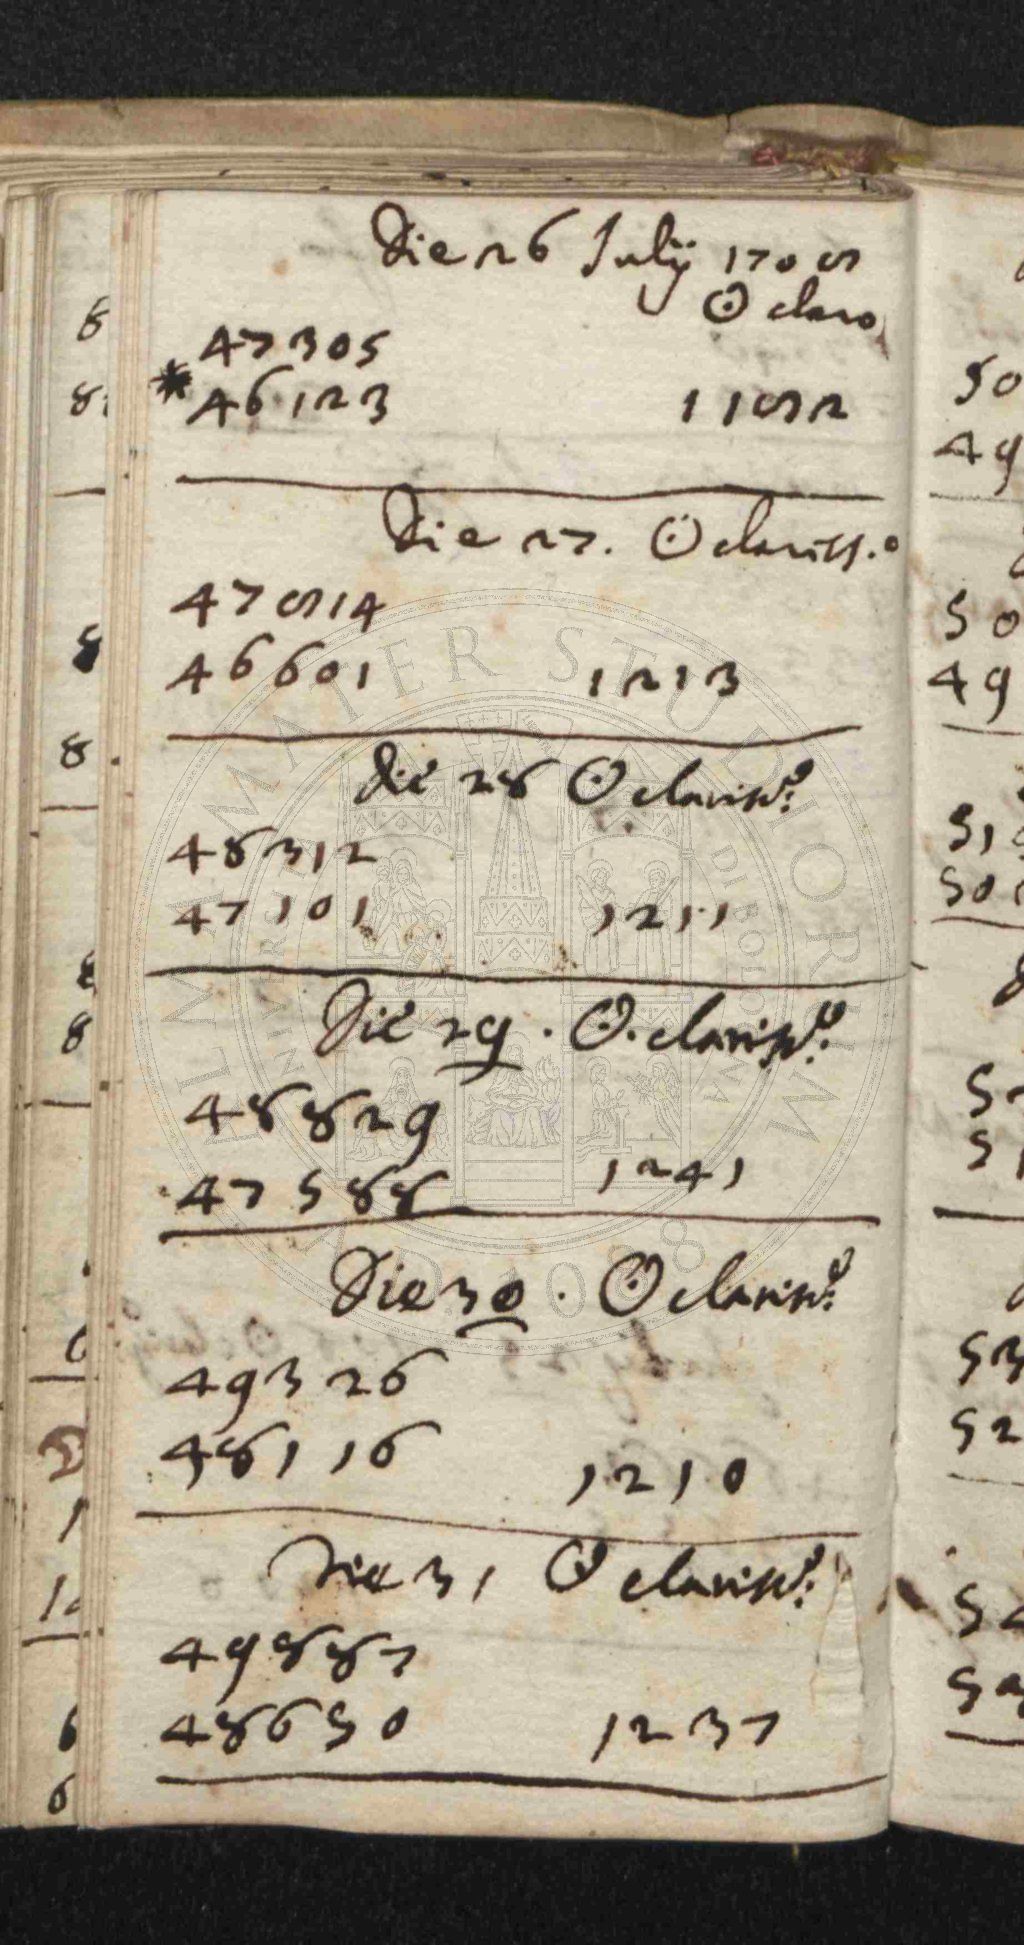 Die 26 Julij 1708
☉ claro
47305
* 46123 1182
Die 27. ☉ clariss.o
47814
46601 1213
Die 28 ☉ clariss.o
48312
47101 1211
Die 29. ☉. clariss.o
48829
47588 1241
Die 30. ☉ clariss.o
49326
48116 1210
Die 31 ☉ clariss.o
49887
48650 1237
ALMA MATER STUDIORUM
A.D. 1088
UNIVERSITÀ DI BOLOGNA